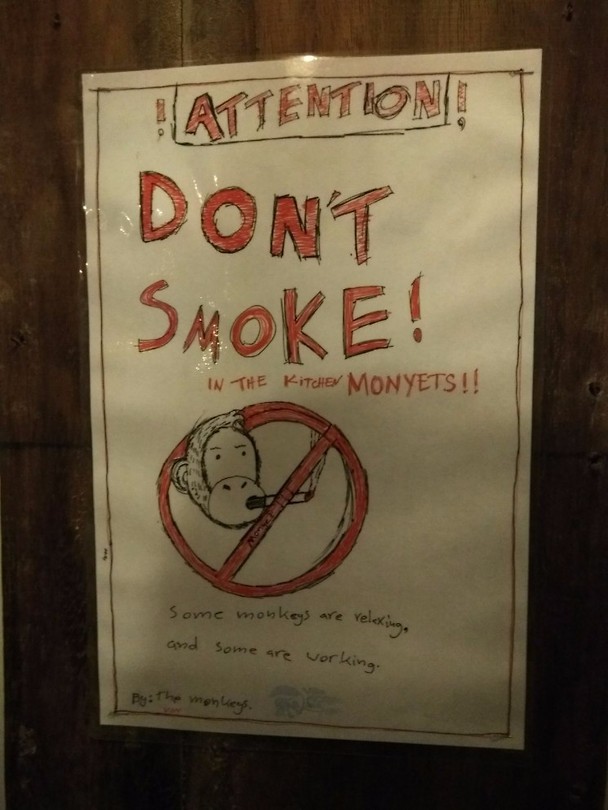 ! ATTENTION !
DON'T
SMOKE!
IN THE KITCHEN MONYETS!!
Some monkeys are relaxing.
and some are working.
By: The monkeys.